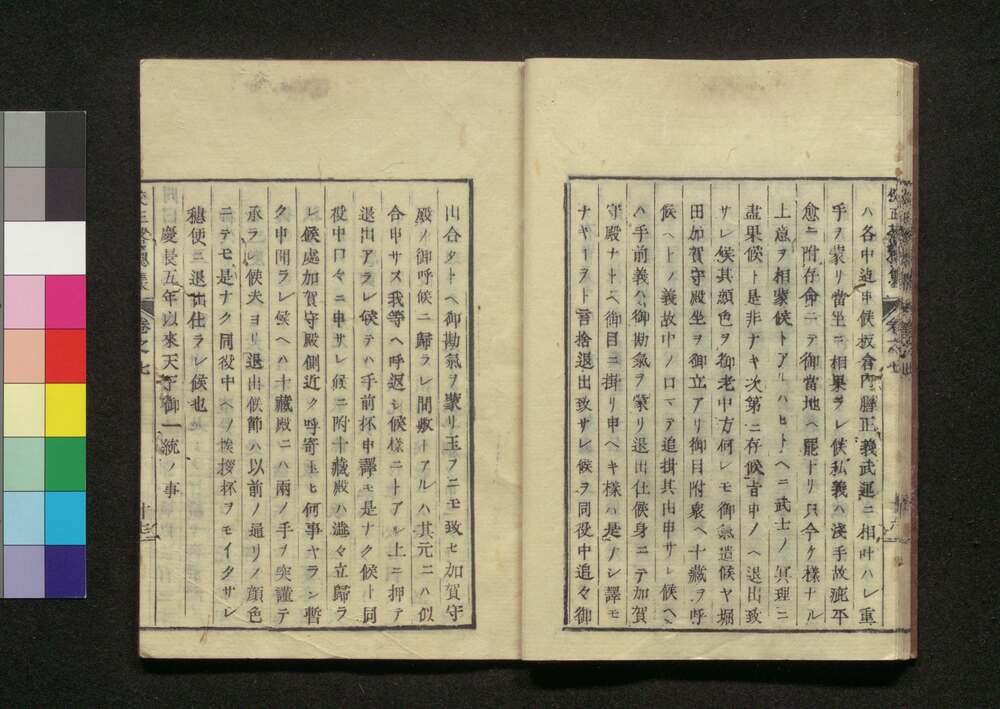 ハ各中迫申候板倉内膳正義武運ニ相叶ハレ重
手ヲ蒙リ當坐ニ相果ラレ候私義ハ淺手故疵平
愈ニ附存命ニテ御當地ヘ罷下リ只今ク樣ナル
上意ヲ相蒙候トアルハヒトヘニ武士ノ冥理ニ
盡果候ト是非ナキ次第ニ存候旨申ノヘ退出致
サレ候其顔色ヲ御老中方何レモ御氣遣候ヤ堀
田加賀守殿坐ヲ御立アリ御目附衆ヘ十藏ヲ呼
候ヘトノ義故中ノ口マテ追掛其由申サレ候ヘ
ハ手前義ハ御勘氣ヲ蒙リ退出仕候身ニテ加賀
守殿ナトヘ御目ニ掛リ申ヘキ樣ハ是ノレ譯モ
ナキ ヲト言捨退出致サレ候ヲ同役中追々御
出合タトヘ御勘氣ヲ蒙リ玉フニモ致セ加賀守
殿ノ御呼候ニ歸ラレ間敷トアルハ其元ニハ似
合申サス我等ヘ呼返シ候樣ニトアル上ニ押テ
退出アラレ候テハ手前抔申譯モ是ナク候ト同
役中口々ニ申サレ候ニ附十藏殿ハ澁々立歸ラ
レ候處加賀守殿側近ク呼寄玉ヒ何事ヤラン暫
ク申聞ラレ候ヘハ十藏殿ニハ兩ノ手ヲ突謹テ
承ラレ候夫ヨリ退出候節ハ以前ノ通リノ顔色
ニテモ是ナク同役中ヘノ挨拶抔ヲモイタサレ
穩便ニ退出仕ラレ候也
慶長五年以來天下御一統ノ事
卷之七